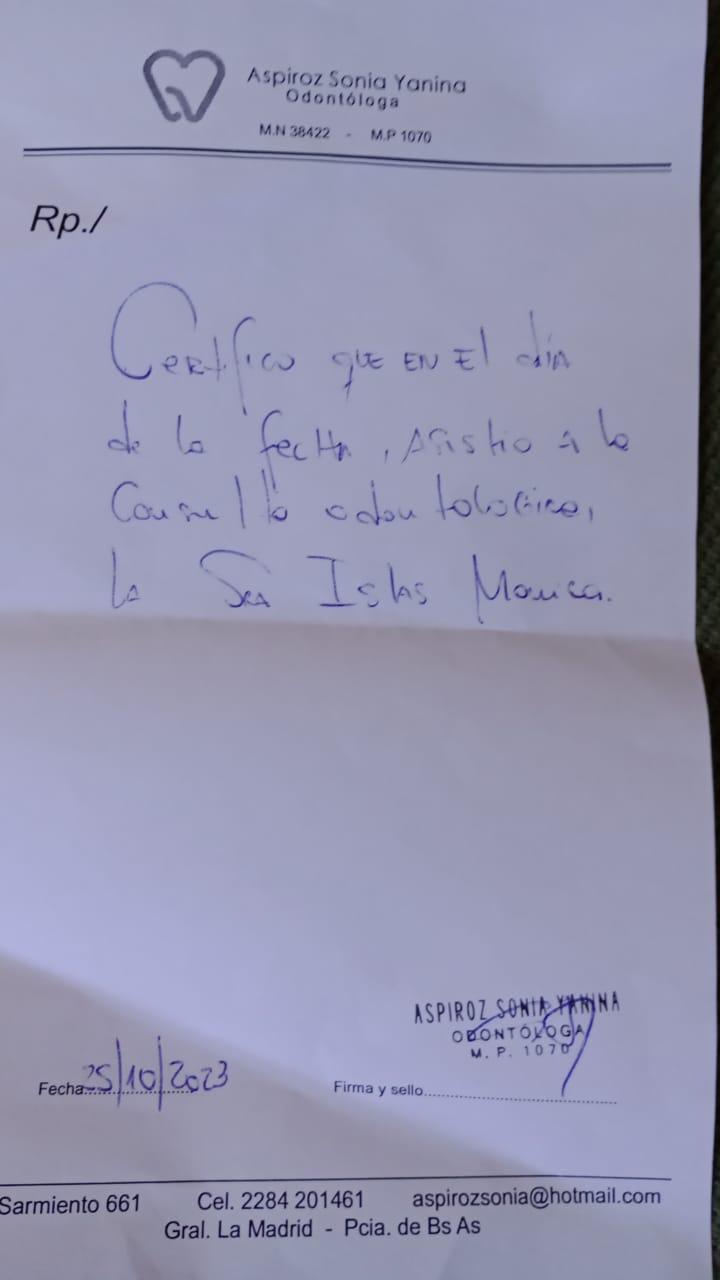 Aspiroz Sonia Yanina
Odontóloga
M.N 38422 - M.P 1070
Rp./
Certifico que en el día
de la fecha, asistio a la
consulta odontologica,
la Sra Islas Monica.
ASPIROZ SONIA YANINA
ODONTÓLOGA
M. P. 1070
Fecha 25/10/2023
Firma y sello
Sarmiento 661 Cel. 2284 201461 aspirozsonia@hotmail.com
Gral. La Madrid - Pcia. de Bs As